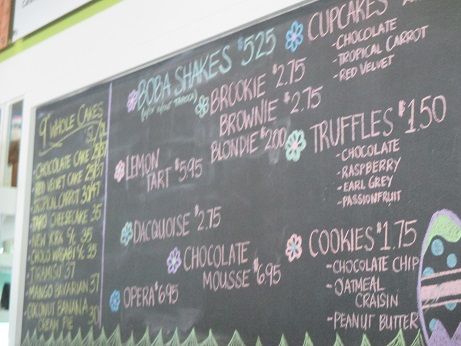 9" WHOLE CAKES
CHOCOLATE CAKE
RED VELVET CAKE
TROPICAL CARROT
TARO CHEESECAKE 35
NEW YORK 5/c 35
TIRAMISU 37
MANGO BAVARIAN 37
COCONUT BANANA
CREAM PIE 30
BOBA SHAKES $5.25
BROOKIE $2.75
BROWNIE $2.75
BLONDIE $2.00
LEMON
TART $5.95
DACQUOISE $2.75
CHOCOLATE
MOUSSE $6.95
OPERA $6.95
CUPCAKES
-CHOCOLATE
-TROPICAL CARROT
-RED VELVET
TRUFFLES $1.50
-CHOCOLATE
-RASPBERRY
-EARL GREY
-PASSIONFRUIT
COOKIES $1.75
-CHOCOLATE CHIP
-OATMEAL
CRAISIN
-PEANUT BUTTER